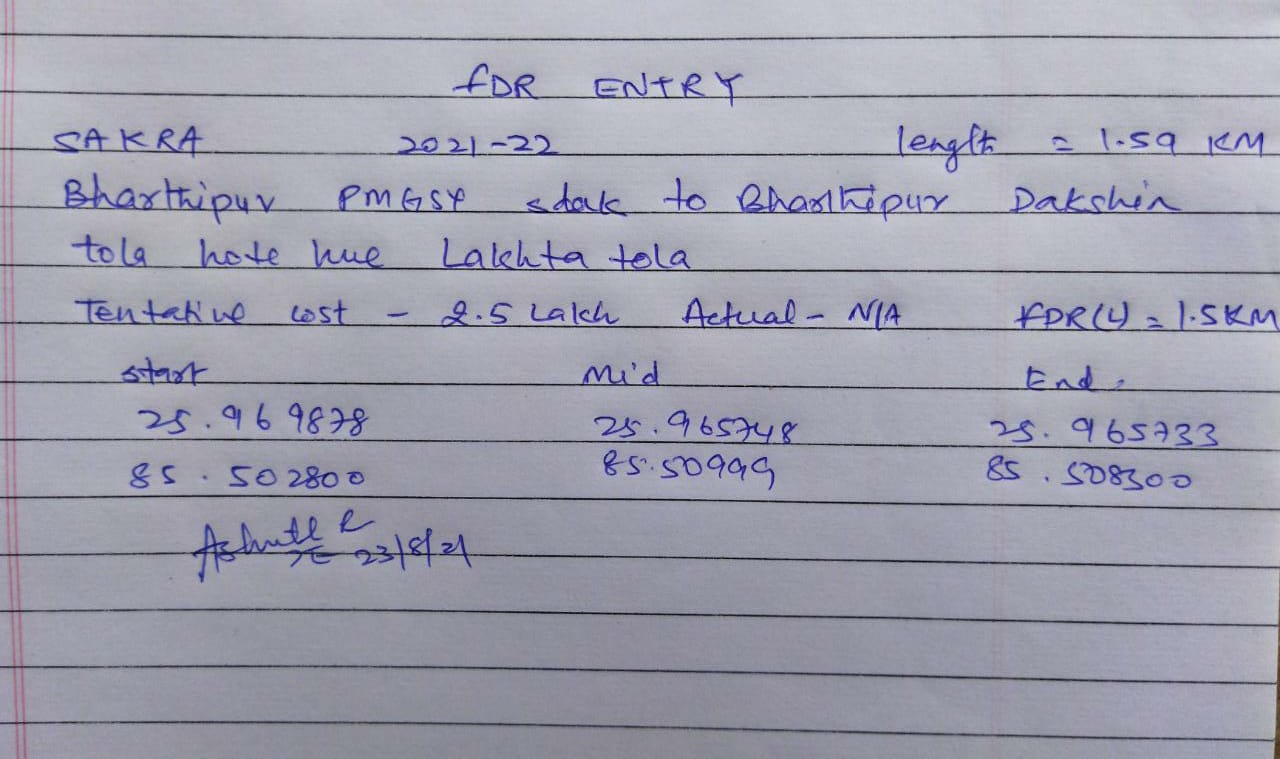 FDR ENTRY
SAKRA 2021-22 length = 1.59 KM
Bharthipur PMGSY sdak to Bharthipur Dakshin
tola hote hue Lakhta tola
Tentative cost - 2.5 Lakh Actual - N/A FDR(L) = 1.5KM
start Mid End
25.969878 25.965748 25.965733
85.502800 85.50999 85.508300
JE 23/8/21